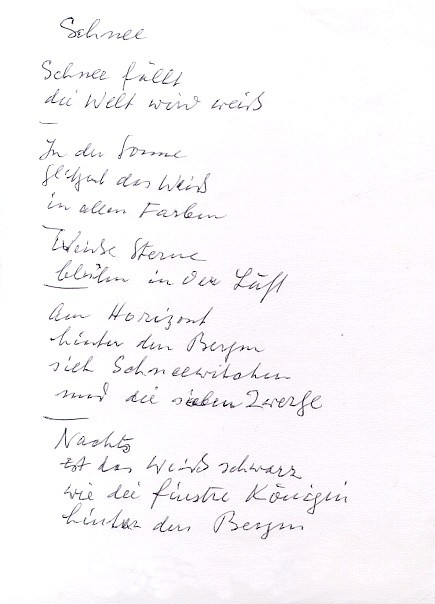 Schnee
Schnee fällt
die Welt wird weiß
In der Sonne
glitzert das Weiß
in allen Farben
Weiße Sterne
blühn in der Luft
Am Horizont
hinter den Bergen
sieh Schneewitchen
und die sieben Zwerge
Nachts
ist das Weiß schwarz
wie die finstre Königin
hinter den Bergen